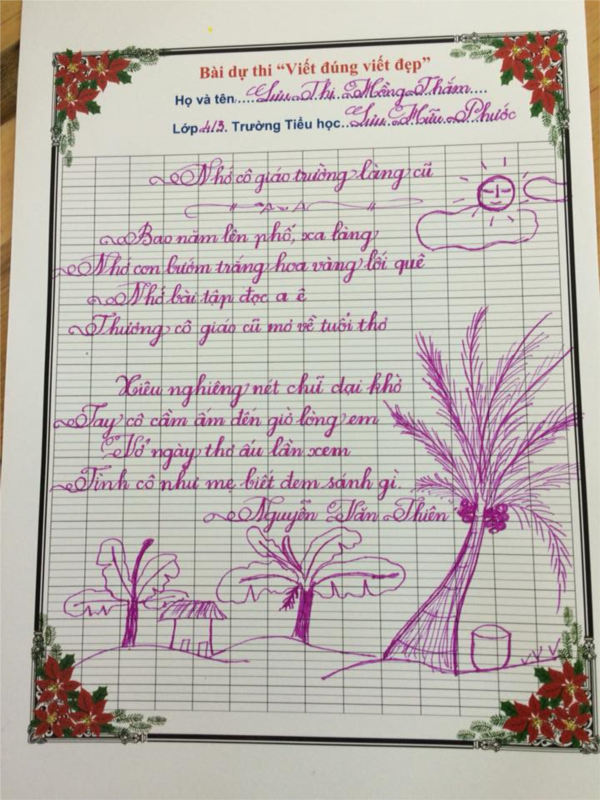 Bài dự thi “Viết đúng viết đẹp”
Họ và tên.....Lưu Thị Hồng Thắm....
Lớp 4/3. Trường Tiểu học...Lưu Hữu Phước
Nhớ cô giáo trường làng cũ
Bao năm lên phố, xa làng
Nhớ con bướm trắng hoa vàng lối quê
Nhớ bài tập đọc a ê
Thương cô giáo cũ mơ về tuổi thơ
Xiêu nghiêng nét chữ dại khờ
Tay cô cầm ấm đến giờ lòng em
Vở ngày thơ ấu lần xem
Tình cô như mẹ biết đem sánh gì.
Nguyễn Văn Thiên